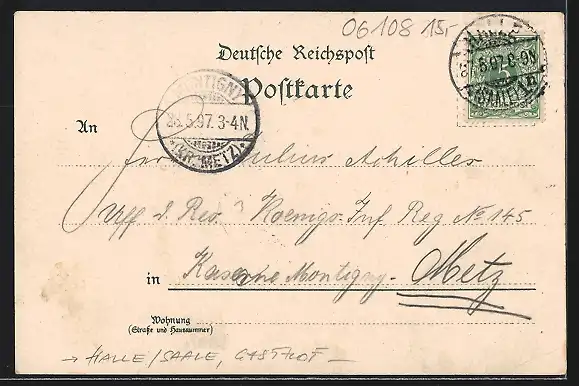 06108 15,-
HALLE
5.97.8-9N
(SAALE)
Deutsche Reichspost
Postkarte
MONTIGNY
26.5.97.3-4N.
(KR. METZ)
An
Julius Achiller
Uff d. Res. Koenigs-Inf Reg No 145
in Kaserne Montigny - Metz
Wohnung
(Straße und Hausnummer)
→ HALLE/SAALE, GASTHOF —